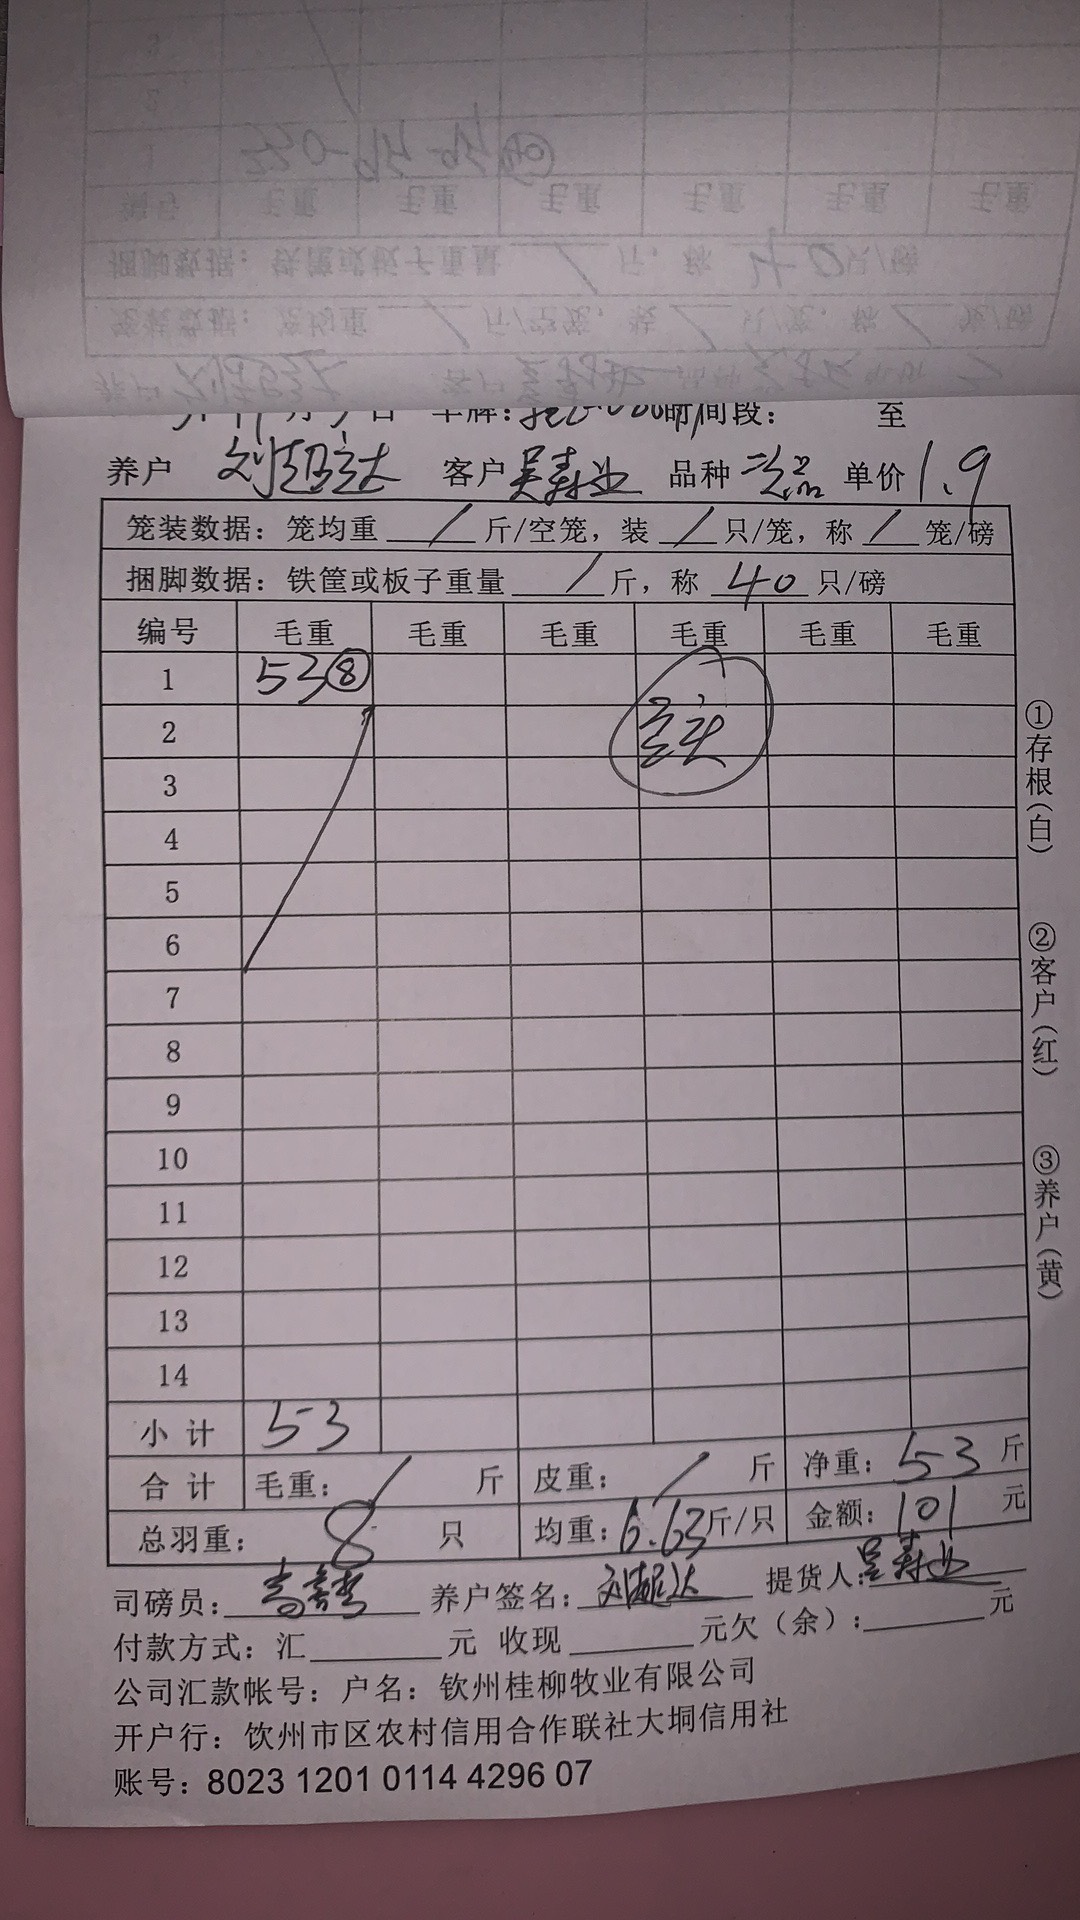 月 日 车牌: 时间段: 至
养户 刘超达 客户 吴寿业 品种 次品 单价 1.9
笼装数据: 笼均重 / 斤/空笼, 装 / 只/笼, 称 / 笼/磅
捆脚数据: 铁筐或板子重量 / 斤, 称 40 只/磅
编号 毛重 毛重 毛重 毛重 毛重 毛重
1 53 ⑧
2
3
4
5
6
7
8
9
10
11
12
13
14
小计 53
合计 毛重: / 斤 皮重: / 斤 净重: 53 斤
总羽重: 8 只 均重: 6.63 斤/只 金额: 101 元
司磅员: 养户签名: 刘超达 提货人: 吴寿业
付款方式: 汇 元 收现 元欠(余): 元
公司汇款帐号: 户名: 钦州桂柳牧业有限公司
开户行: 钦州市区农村信用合作联社大垌信用社
账号: 8023 1201 0114 4296 07
①存根(白) ②客户(红) ③养户(黄)